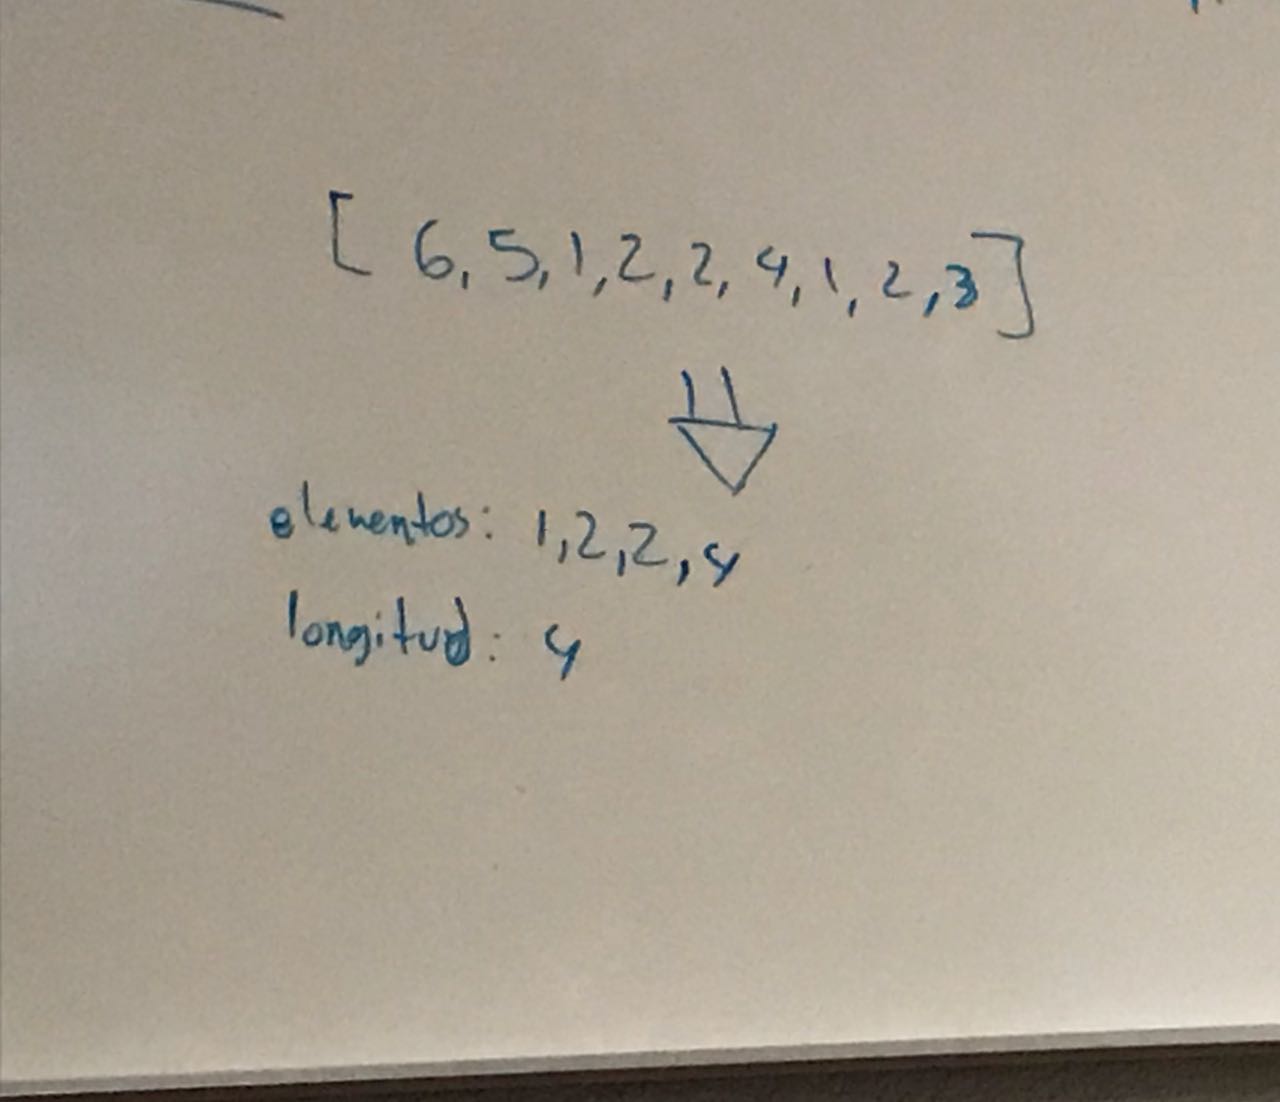 [ 6, 5, 1, 2, 2, 4, 1, 2, 3 ]
elementos: 1, 2, 2, 4
longitud: 4